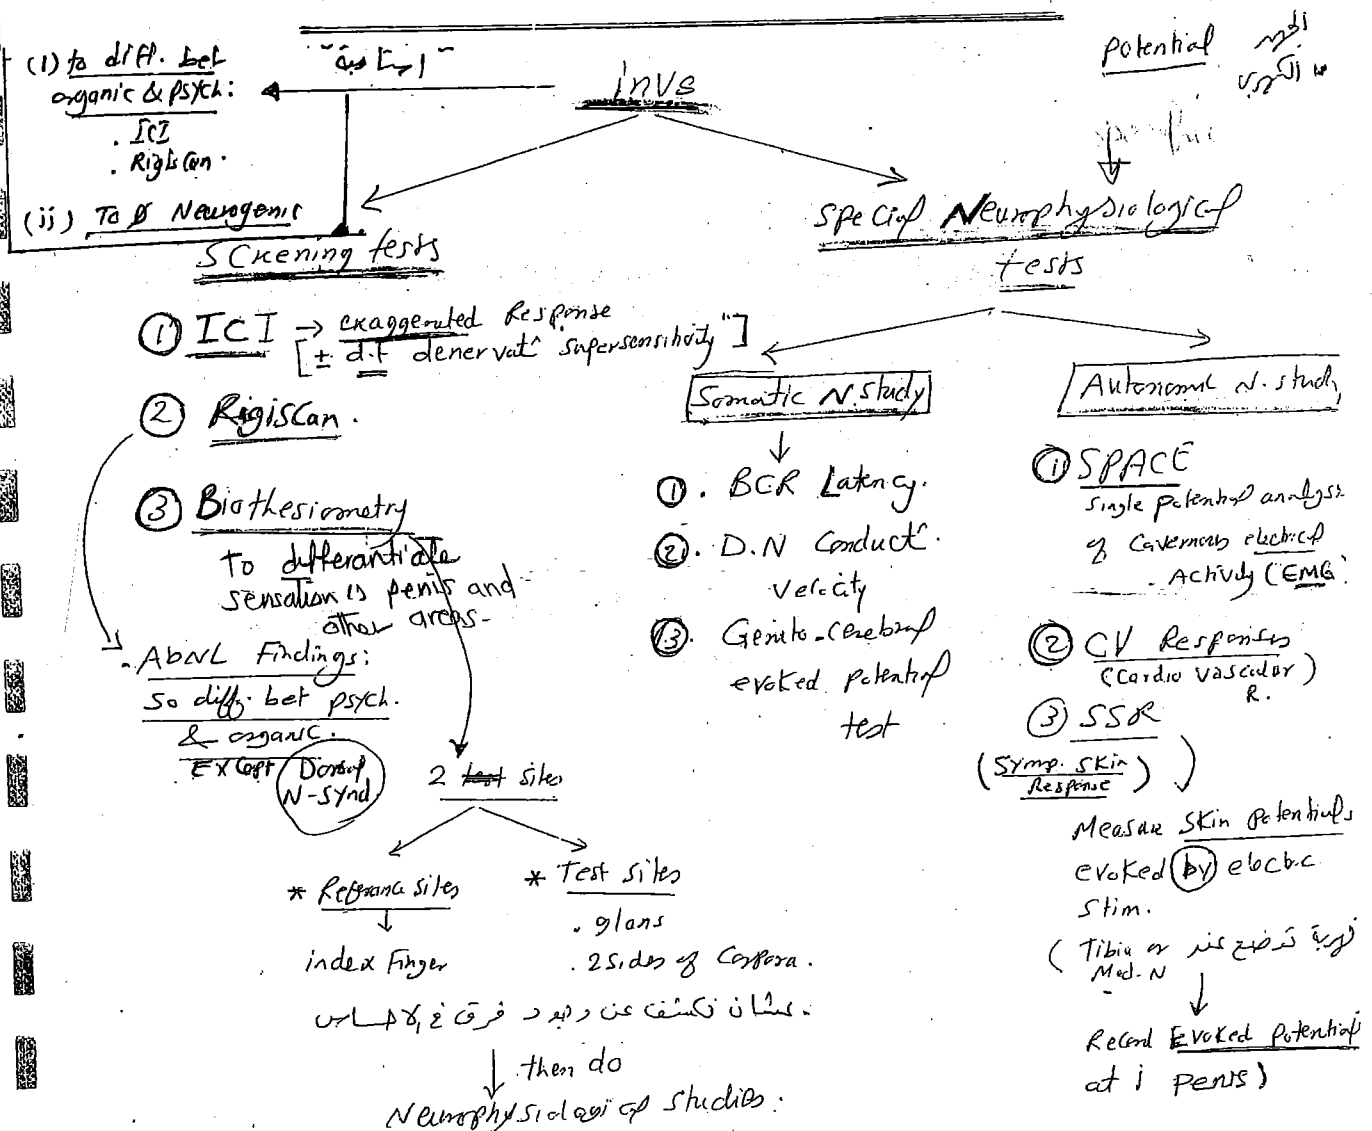 (i) to diff. bet
organic & psych:
. ICI
. RigiScan.
(ii) To Ø Neurogenic
invs
Potential
Screening tests
① ICI → exaggerated Response
[± d.t denervat^ supersensitivity"]
② RigiScan.
③ Biothesiometry
To differantiate
sensation is penis and
other areas-
. AbNL Findings:
So diff. bet psych.
& organic.
Except Dorsal
N-Synd
2 sites
* Reference sites
index Finger
* Test sites
. glans
. 2 sides of Corpora.
عشان نكشف عن وجود فرق في الاحساس.
then do
Neurophysiological studies.
Special Neurophysiological
tests
Somatic N. study
①. BCR Latency.
②. D.N Conduct^.
Velocity
③. Genito-cerebral
evoked potential
test
Autonomic N. study
① SPACE
single potential analysis
of Cavernous electrical
Activity (EMG)
② CV Responses
(Cardio vascular)
R.
③ SSR
(Symp. Skin
Response)
Measure Skin potentials
evoked by electric
Stim.
( Tibia or توضع عند
Med. N
Record Evoked Potential
at i penis)